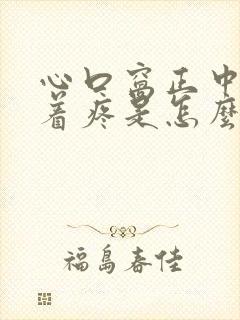 心口窝正中
着疼是怎麼
福島春佳